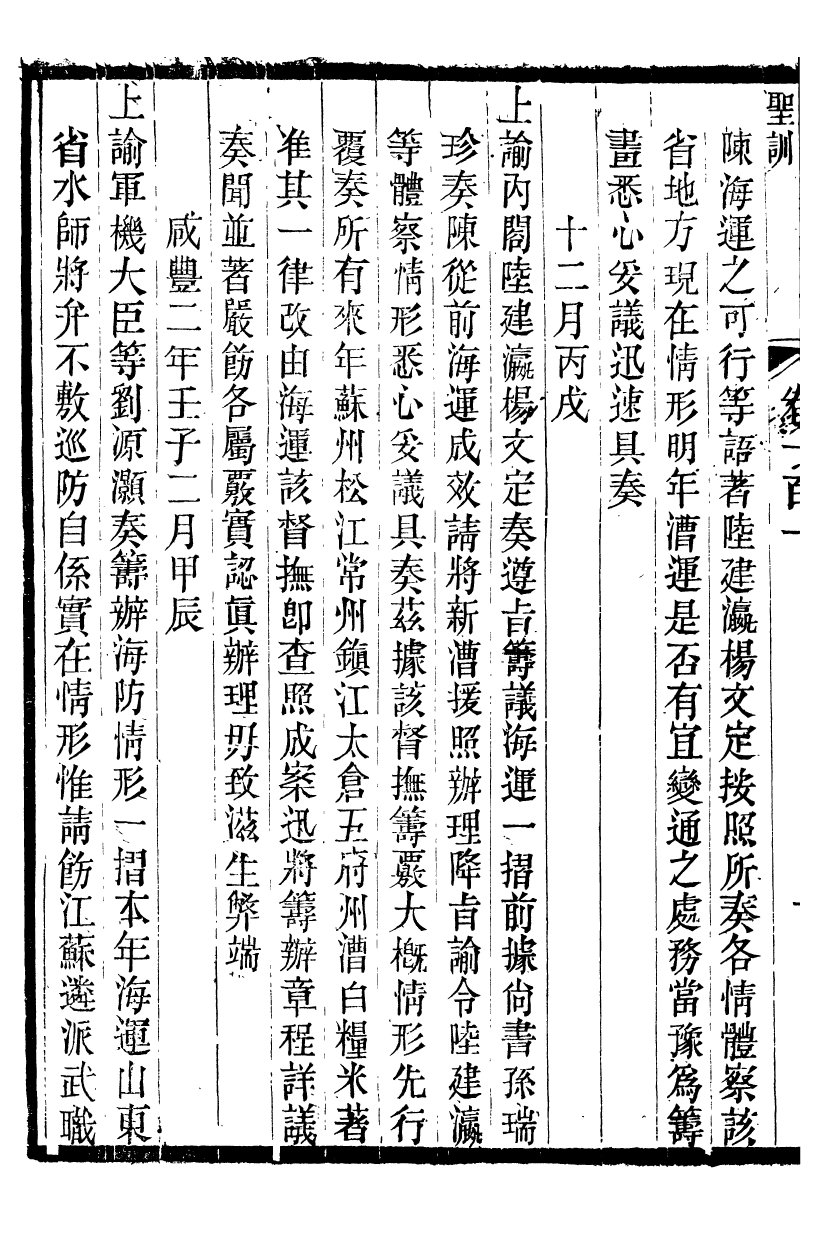 聖訓 卷一百一
陳海運之可行等語著陸建瀛楊文定按照所奏各情體察該
省地方現在情形明年漕運是否有宜變通之處務當豫爲籌
畫悉心妥議迅速具奏
十二月丙戌
上諭內閣陸建瀛楊文定奏遵旨籌議海運一摺前據尙書孫瑞
珍奏陳從前海運成效請將新漕援照辦理降旨諭令陸建瀛
等體察情形悉心妥議具奏茲據該督撫籌覈大槪情形先行
覆奏所有來年蘇州松江常州鎭江太倉五府州漕白糧米著
准其一律改由海運該督撫卽查照成案迅將籌辦章程詳議
奏聞並著嚴飭各屬覈實認眞辦理毋致滋生弊端
咸豐二年壬子二月甲辰
上諭軍機大臣等劉源灝奏籌辦海防情形一摺本年海運山東
省水師將弁不敷巡防自係實在情形惟請飭江蘇遴派武職